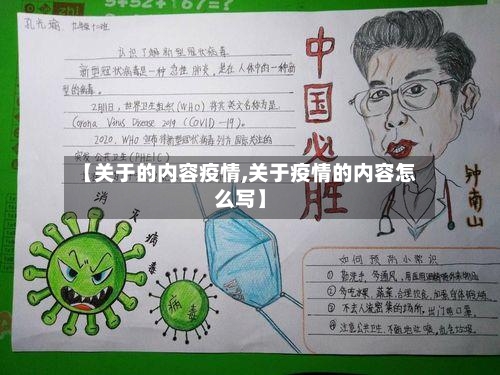 认识了解新型冠状病毒
新型冠状病毒是一种急性肺炎,是在人体中的一种新
型的病毒。
2月11日,世界卫生组织(WHO)将其英文名称为是
Corona Virus Disease 2019 (COVID-19)。
2020, WHO 宣布将新型冠状病毒列为国际关注的
突发公共卫生(PHEIC)
中国必胜
【关于的内容疫情,关于疫情的内容怎
么写】
钟南山
消灭病毒
病毒
如何预防小常识
① 勤洗手,多通风,
② 多吃水果,蔬菜,合理饮食,
③ 不去人流密集的场所,出门戴口罩。
④ 注意公共卫生